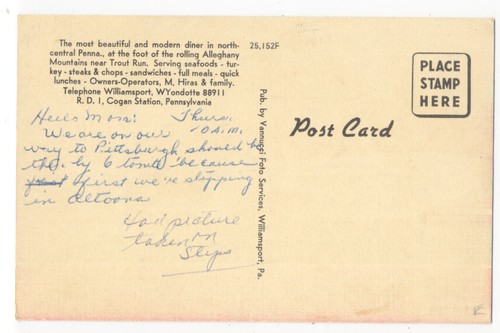 The most beautiful and modern diner in north-
central Penna., at the foot of the rolling Alleghany
Mountains near Trout Run. Serving seafoods - tur-
key - steaks & chops - sandwiches - full meals - quick
lunches - Owners-Operators, M, Hiras & family.
Telephone Williamsport, WYondotte 88911
R. D. 1, Cogan Station, Pennsylvania
25,152F
Pub. by Vannucci Foto Services, Williamsport, Pa.
Post Card
PLACE
STAMP
HERE
Hello Mom: Thurs.
10 A.M.
We are on our
way to Pittsburgh should be
by 6 because
first we're stopping
in Altoona
Had picture
taken on
Steps